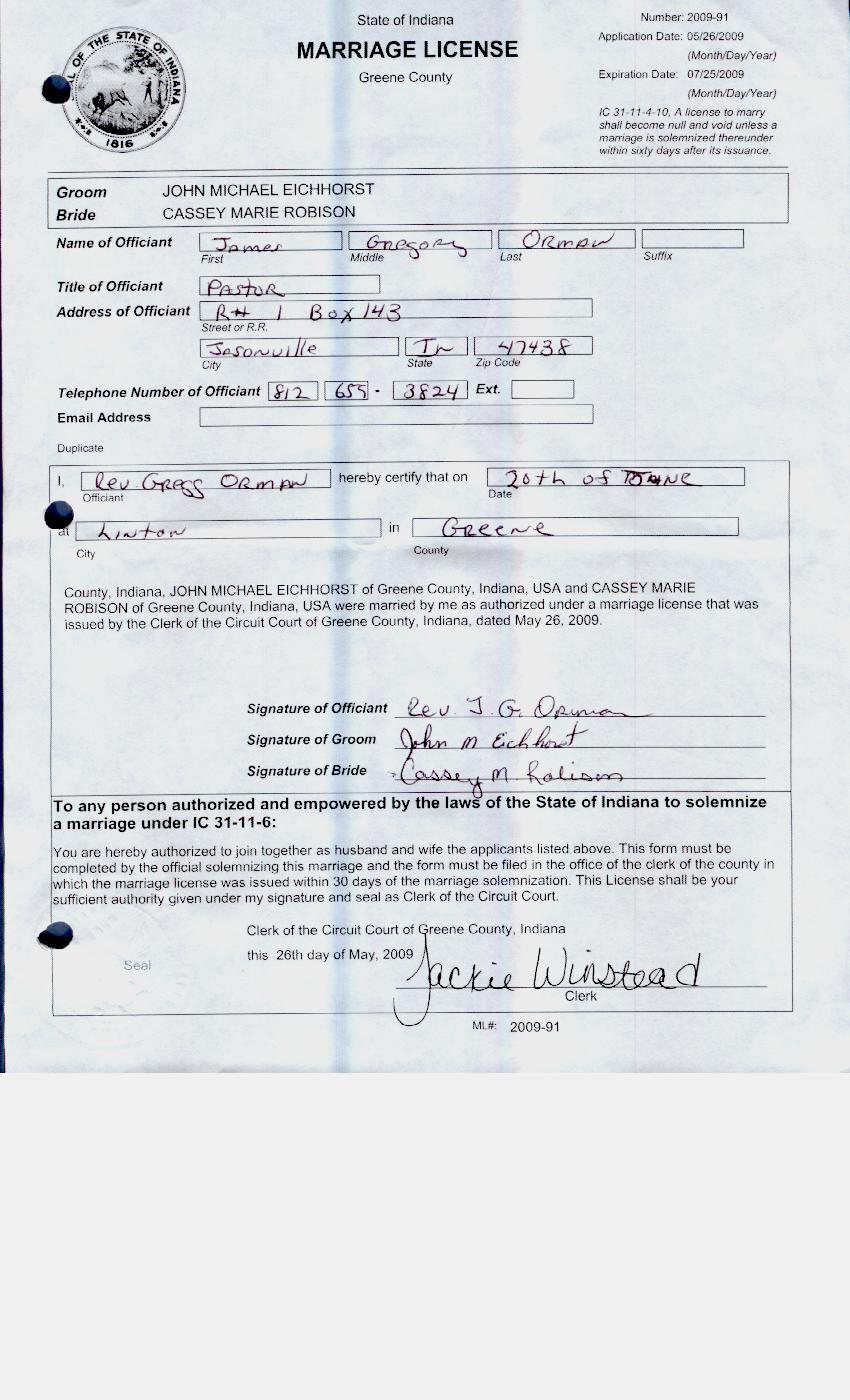 State of Indiana
MARRIAGE LICENSE
Greene County
Number: 2009-91
Application Date: 05/26/2009
(Month/Day/Year)
Expiration Date: 07/25/2009
(Month/Day/Year)
IC 31-11-4-10, A license to marry
shall become null and void unless a
marriage is solemnized thereunder
within sixty days after its issuance.
OF THE STATE OF INDIANA
1816
Groom JOHN MICHAEL EICHHORST
Bride CASSEY MARIE ROBISON
Name of Officiant James Gregory Orman
First Middle Last Suffix
Title of Officiant Pastor
Address of Officiant R# 1 Box 143
Street or R.R.
Jasonville In 47438
City State Zip Code
Telephone Number of Officiant 812 659 - 3824 Ext.
Email Address
Duplicate
I, Rev Gregg Orman hereby certify that on 20th of June
Officiant Date
at Linton in Greene
City County
County, Indiana, JOHN MICHAEL EICHHORST of Greene County, Indiana, USA and CASSEY MARIE
ROBISON of Greene County, Indiana, USA were married by me as authorized under a marriage license that was
issued by the Clerk of the Circuit Court of Greene County, Indiana, dated May 26, 2009.
Signature of Officiant Rev. J. G. Orman
Signature of Groom John M Eichhorst
Signature of Bride Cassey M. Robison
To any person authorized and empowered by the laws of the State of Indiana to solemnize
a marriage under IC 31-11-6:
You are hereby authorized to join together as husband and wife the applicants listed above. This form must be
completed by the official solemnizing this marriage and the form must be filed in the office of the clerk of the county in
which the marriage license was issued within 30 days of the marriage solemnization. This License shall be your
sufficient authority given under my signature and seal as Clerk of the Circuit Court.
Clerk of the Circuit Court of Greene County, Indiana
this 26th day of May, 2009 Jackie Winstead
Seal
Clerk
ML#: 2009-91